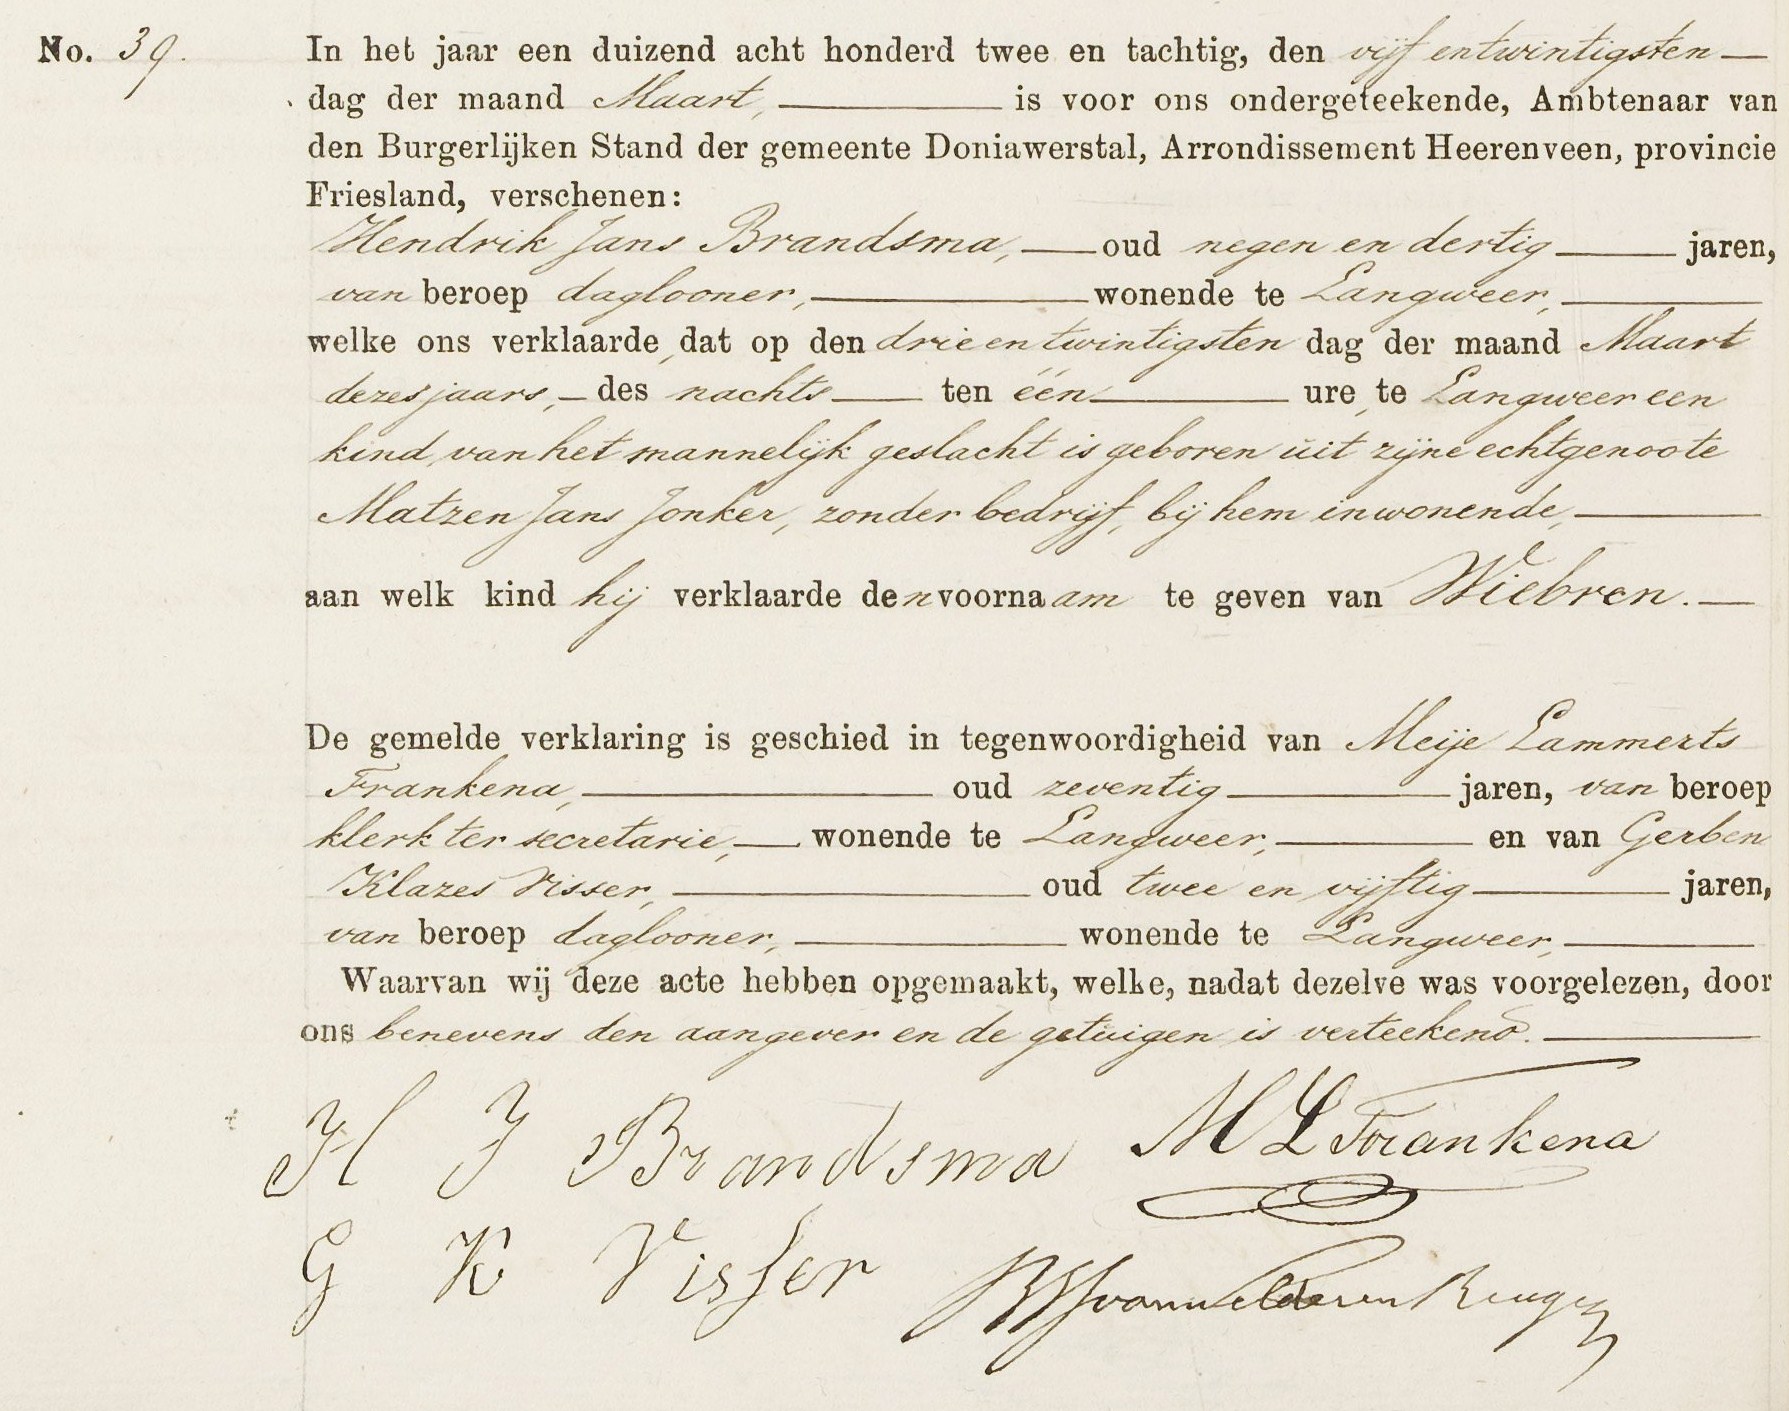 No. 39.
In het jaar een duizend acht honderd twee en tachtig, den vijf entwintigsten
dag der maand Maart, is voor ons ondergeteekende, Ambtenaar van
den Burgerlijken Stand der gemeente Doniawerstal, Arrondissement Heerenveen, provincie
Friesland, verschenen:
Hendrik Jans Brandsma, oud negen en dertig jaren,
van beroep daglooner, wonende te Langweer,
welke ons verklaarde, dat op den drie en twintigsten dag der maand Maart
dezes jaars, des nachts ten één ure, te Langweer een
kind van het mannelijk geslacht is geboren uit zijne echtgenoote
Matzen Jans Jonker, zonder bedrijf, bij hem inwonende,
aan welk kind hij verklaarde den voornaam te geven van Wiebren.
De gemelde verklaring is geschied in tegenwoordigheid van Meije Lammerts
Frankena, oud zeventig jaren, van beroep
klerk ter secretarie, wonende te Langweer, en van Gerben
Klazes Visser, oud twee en vijftig jaren,
van beroep daglooner, wonende te Langweer,
Waarvan wij deze acte hebben opgemaakt, welke, nadat dezelve was voorgelezen, door
ons benevens den aangever en de getuigen is verteekend.
H J Brandsma M L Frankena
G K Visser